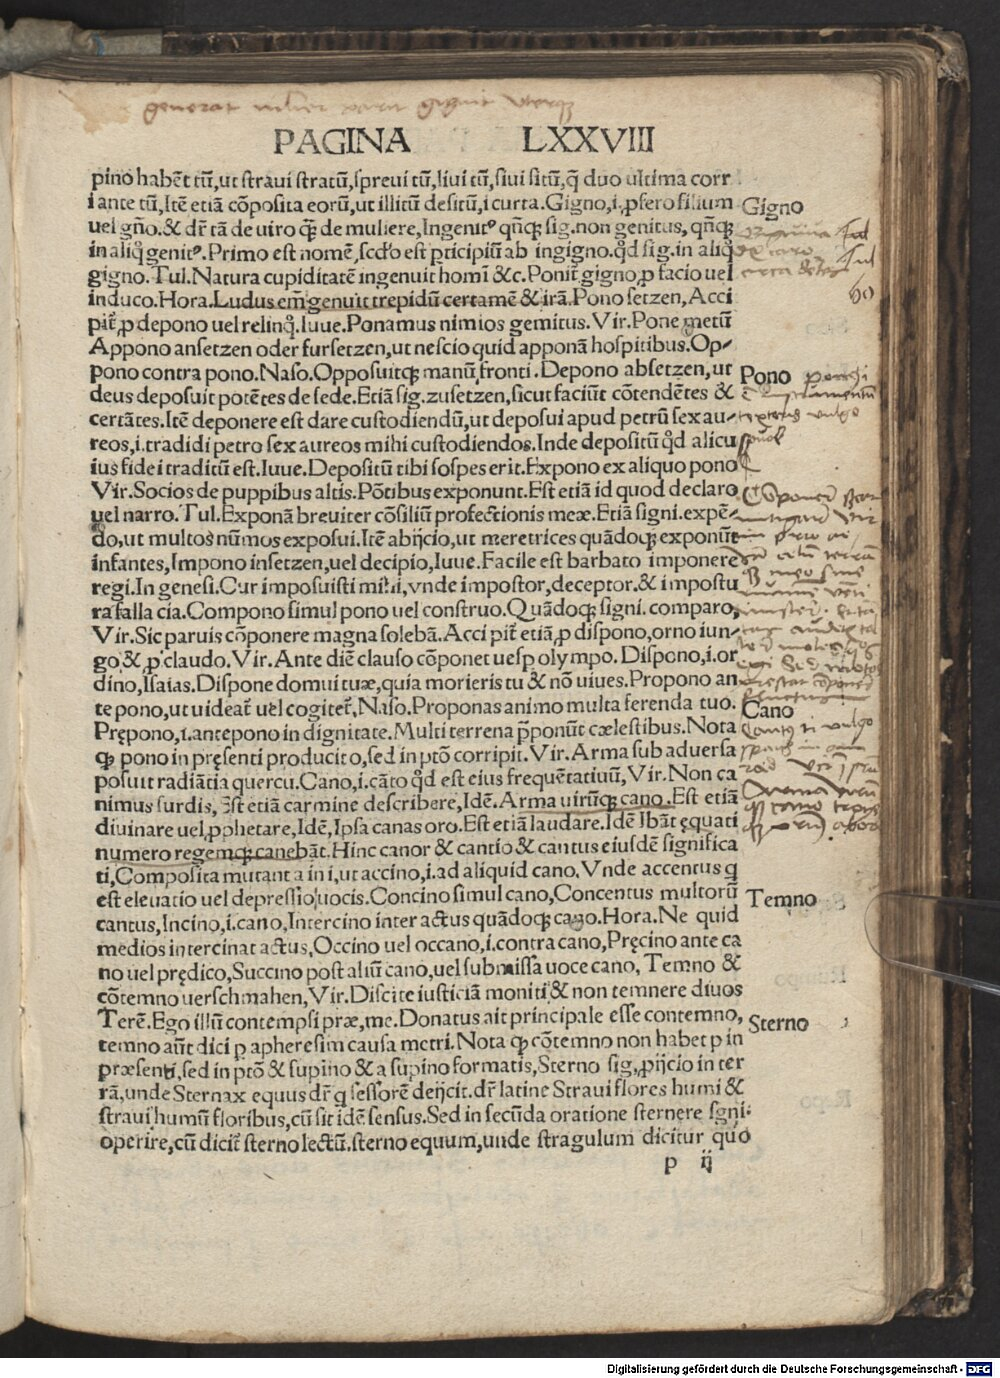 generat mulier parit gignit uterq̃
PAGINA LXXVIII
pino habēt tū,ut straui stratū,spreui tū,liui tū,siui sitū,q̃ duo ultima corr
iante tū,Itē etiā cōposita eorū,ut illitū desitū,i curta.Gigno,i,ꝓfero filium
uel gño.& dr̃ tā de uiro q̃ȝ de muliere,Ingenitꝰ qñqȝ sig.non genitus, qñqȝ
in aliq̃ genitꝰ.Primo est nomē,scd̃o est p̱ticipiū ab ingigno.qd̃ sig.in aliq̃
gigno.Tul.Natura cupiditatē ingenuit homī &c.Ponit̃ gigno,ꝓ facio uel
induco.Hora.Ludus em̃ genuit trepidū certamē & irā.Pono setzen,Acci
pit̃,ꝓ depono uel relinq̃.Iuue.Ponamus nimios gemitus.Vir.Pone metū
Appono ansetzen oder fursetzen,ut nescio quid apponā hospitibus.Op-
pono contra pono.Naso.Opposuitqȝ manū fronti.Depono absetzen,ut
deus deposuit potētes de sede.Etiā sig.zusetzen,sicut faciūt cōtendētes &
certātes.Itē deponere est dare custodiendū,ut deposui apud petrū sex au-
reos,i.tradidi petro sex aureos mihi custodiendos.Inde depositū qd̃ alicu
ius fidei traditū est.Iuue.Depositū tibi sospes erit.Expono ex aliquo pono
Vir.Socios de puppibus altis.Pōtibus exponunt.Est etiā id quod declaro
uel narro.Tul.Exponā breuiter cōsiliū profectionis meæ.Etiā signi.expē-
do,ut multos nūmos exposui.Itē abijcio,ut meretrices quādoqȝ exponūt
infantes,Impono insetzen,uel decipio,Iuue.Facile est barbato imponere
regi.In genesi.Cur imposuisti mihi,vnde impostor,deceptor.& impostu
ra falla cia.Compono simul pono uel construo.Quādoqȝ signi.comparo,
Vir.Sic paruis cōponere magna solebā.Acci pit̃ etiā,ꝓ dispono,orno iun-
go,&,ꝓ claudo.Vir.Ante diē clauso cōponet uesp̱ olympo.Dispono,i.or
dino,Isaias.Dispone domui tuæ,quia morieris tu & nō uiues.Propono an
te pono,ut uideat̃ uel cogitet̃,Naso.Proponas animo multa ferenda tuo.
Prępono,i.antepono in dignitate.Multi terrena p̃ponūt cælestibus.Nota
qȝ pono in pręsenti producit o,sed in ptō corripit.Vir.Arma sub aduersa
posuit radiātia quercu.Cano,i.cāto qd̃ est eius frequētatiuū,Vir.Non ca
nimus surdis,Est etiā carmine describere,Idē.Arma uirūqȝ cano.Est etiā
diuinare uel,ꝓphetare,Idē,Ipsa canas oro.Est etiā laudare.Idē Ibāt ęquati
numero regemqȝ canebāt.Hinc canor & cantio & cantus eiusdē significa
ti,Composita mutant a in i,ut accino,i.ad aliquid cano.Vnde accentus q
est eleuatio uel depressio uocis.Concino simul cano,Concentus multorū
cantus,Incino,i.cano,Intercino inter actus quādoqȝ cano.Hora.Ne quid
medios intercinat actus,Occino uel occano,i.contra cano,Pręcino ante ca
no uel prędico,Succino post aliū cano,uel submissa uoce cano, Temno &
cōtemno uerschmahen,Vir.Discite iusticiā moniti & non temnere diuos
Terē.Ego illū contempsi præ,me.Donatus ait principale esse contemno,
temno aūt dici p̱ apheresim causa metri.Nota qȝ cōtemno non habet p in
præsenti,sed in ptō & supino & a supino formatis,Sterno sig,ꝓijcio in ter
rā,unde Sternax equus dr̃ q sessorē deijcit.dr̃ latine Straui flores humi &
straui humū floribus,cū sit idē sensus.Sed in secūda oratione sternere sgni:
operire,cū dicit̃ sterno lectū.sterno equum,unde stragulum dicitur quo
p ij
Gigno
60
Pono
Cano
Temno
Sterno
Digitalisierung gefördert durch die Deutsche Forschungsgemeinschaft - DFG